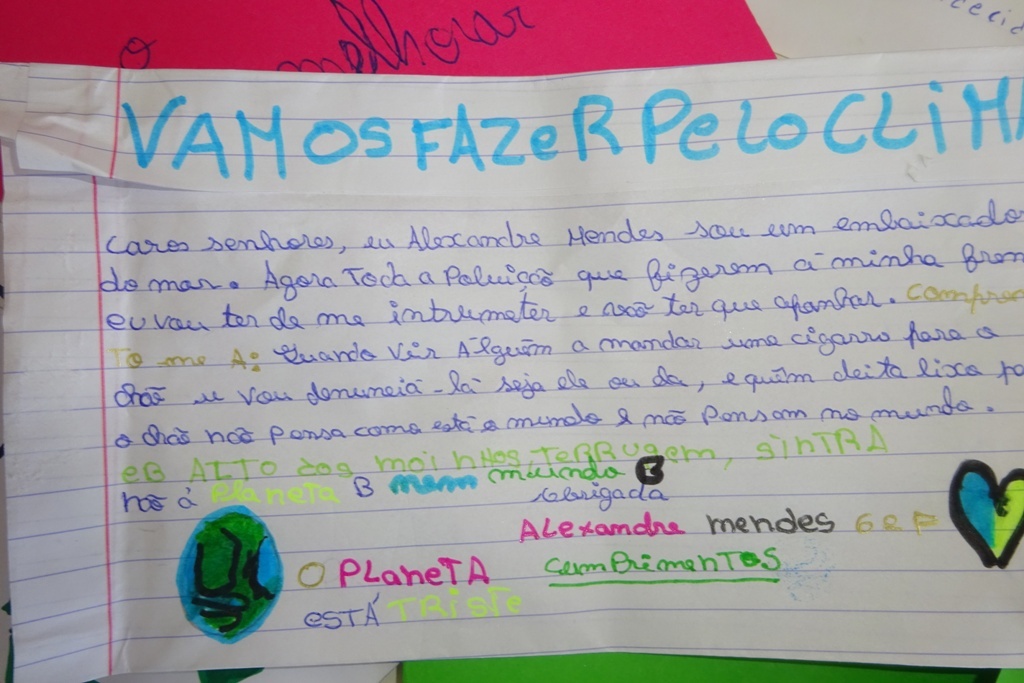 o melhorar
VAMOS FAZeR PeLo CLiMA
Caros senhores, eu Alexandre Mendes sou um embaixado
do mar. Agora Toda a Poluição que fizerem á minha fren
eu vou ter de me intrumeter e vão ter que apanhar. Compro
To me A: Quando vir Alguém a mandar uma cigarro para o
chão u vou denunciá-la seja ele ou da, e quêm deita lixo pa
o chão não Pensa como está o mundo e não Pensam no mundo.
eB ALTO dos moinhos-TeRRugem, SiNTRA
não á PLaneTa B nem muindo B
obrigada
ALexandre mendes 6ºF
O PLaneTA cumPrimenTOS
eSTÁ TRiSTe